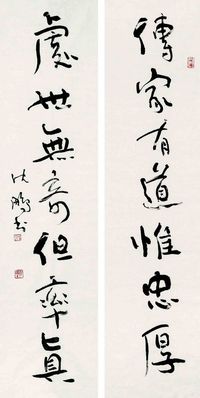 傳家有道惟忠厚
處世無奇但率真
沈鵬書